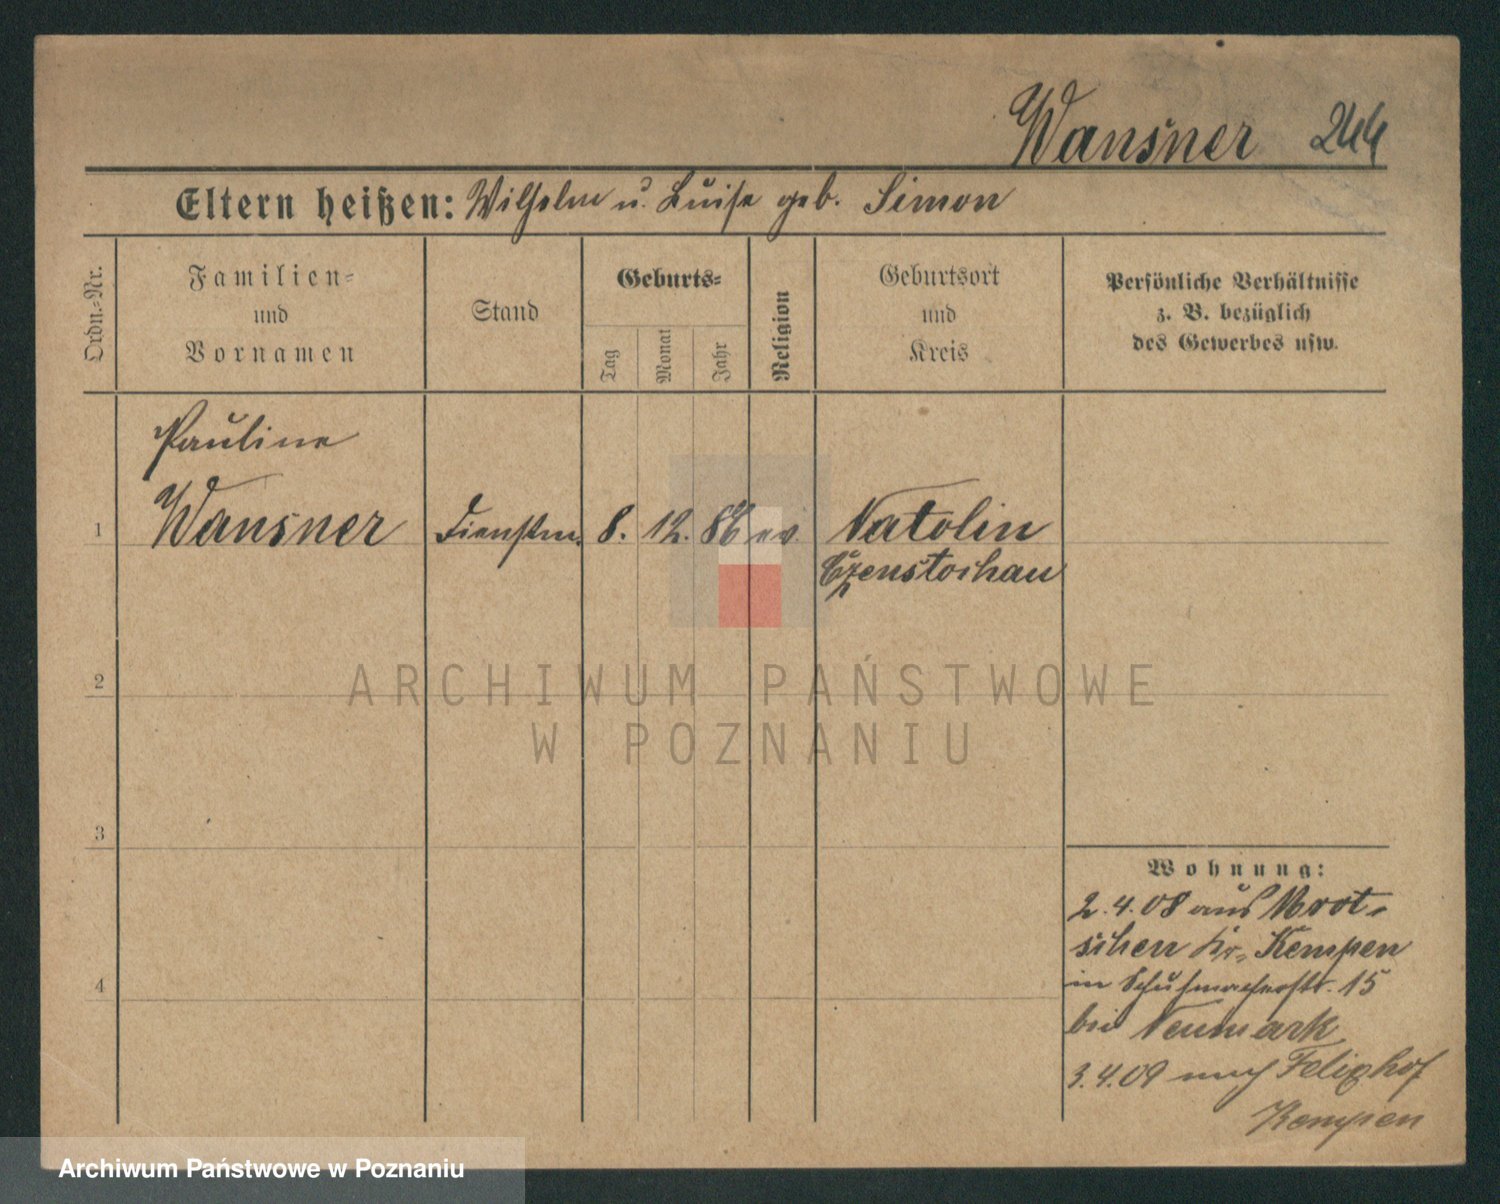 Wansner 244
Eltern heißen: Wilhelm u. Luise geb. Simon
Ordn.-Nr.
Familien-
und
Vornamen
Stand
Geburts-
Tag
Monat
Jahr
Religion
Geburtsort
und
Kreis
Persönliche Verhältnisse
z. B. bezüglich
des Gewerbes usw.
Pauline
1 Wansner Dienstm. 8. 12. 86 ev. Natolin
Czenstochau
2
3
4
Wohnung:
2.4.08 aus Mrot-
schen Kr. Kempen
in Schuhmacherstr. 15
bei Neumark
3.4.09 nach Felixhof
Kempen
ARCHIWUM PAŃSTWOWE
W POZNANIU
Archiwum Państwowe w Poznaniu